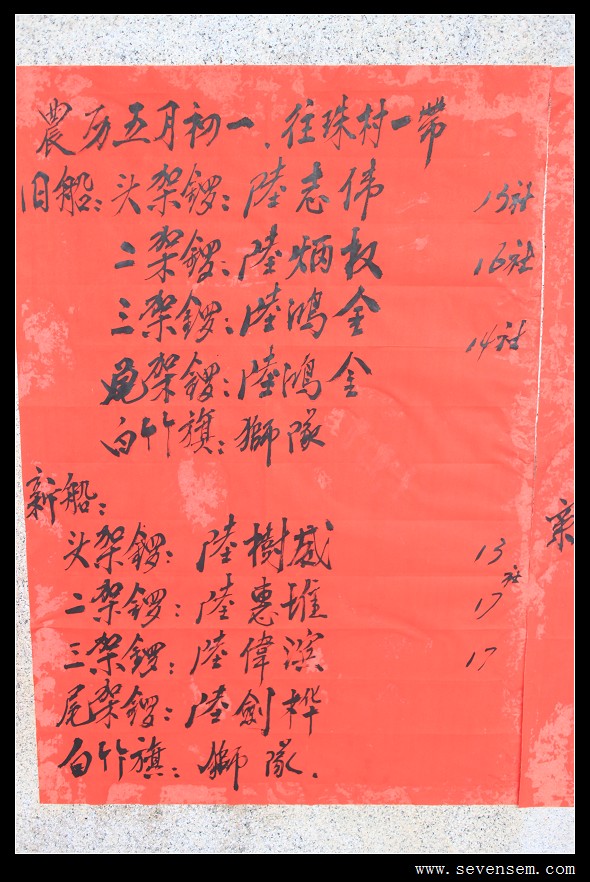 農历五月初一、往珠村一带
旧船：头架鑼：陸志偉 15社
二架鑼：陸炳权 16社
三架鑼：陸鴻金
14社
尾架鑼：陸鴻金
白竹旗：獅隊
新船：
头架鑼：陸樹威 13社
二架鑼：陸惠雄 17
三架鑼：陸偉滨 17
尾架鑼：陸劍桦
白竹旗：獅隊.
亲
www.sevensem.com